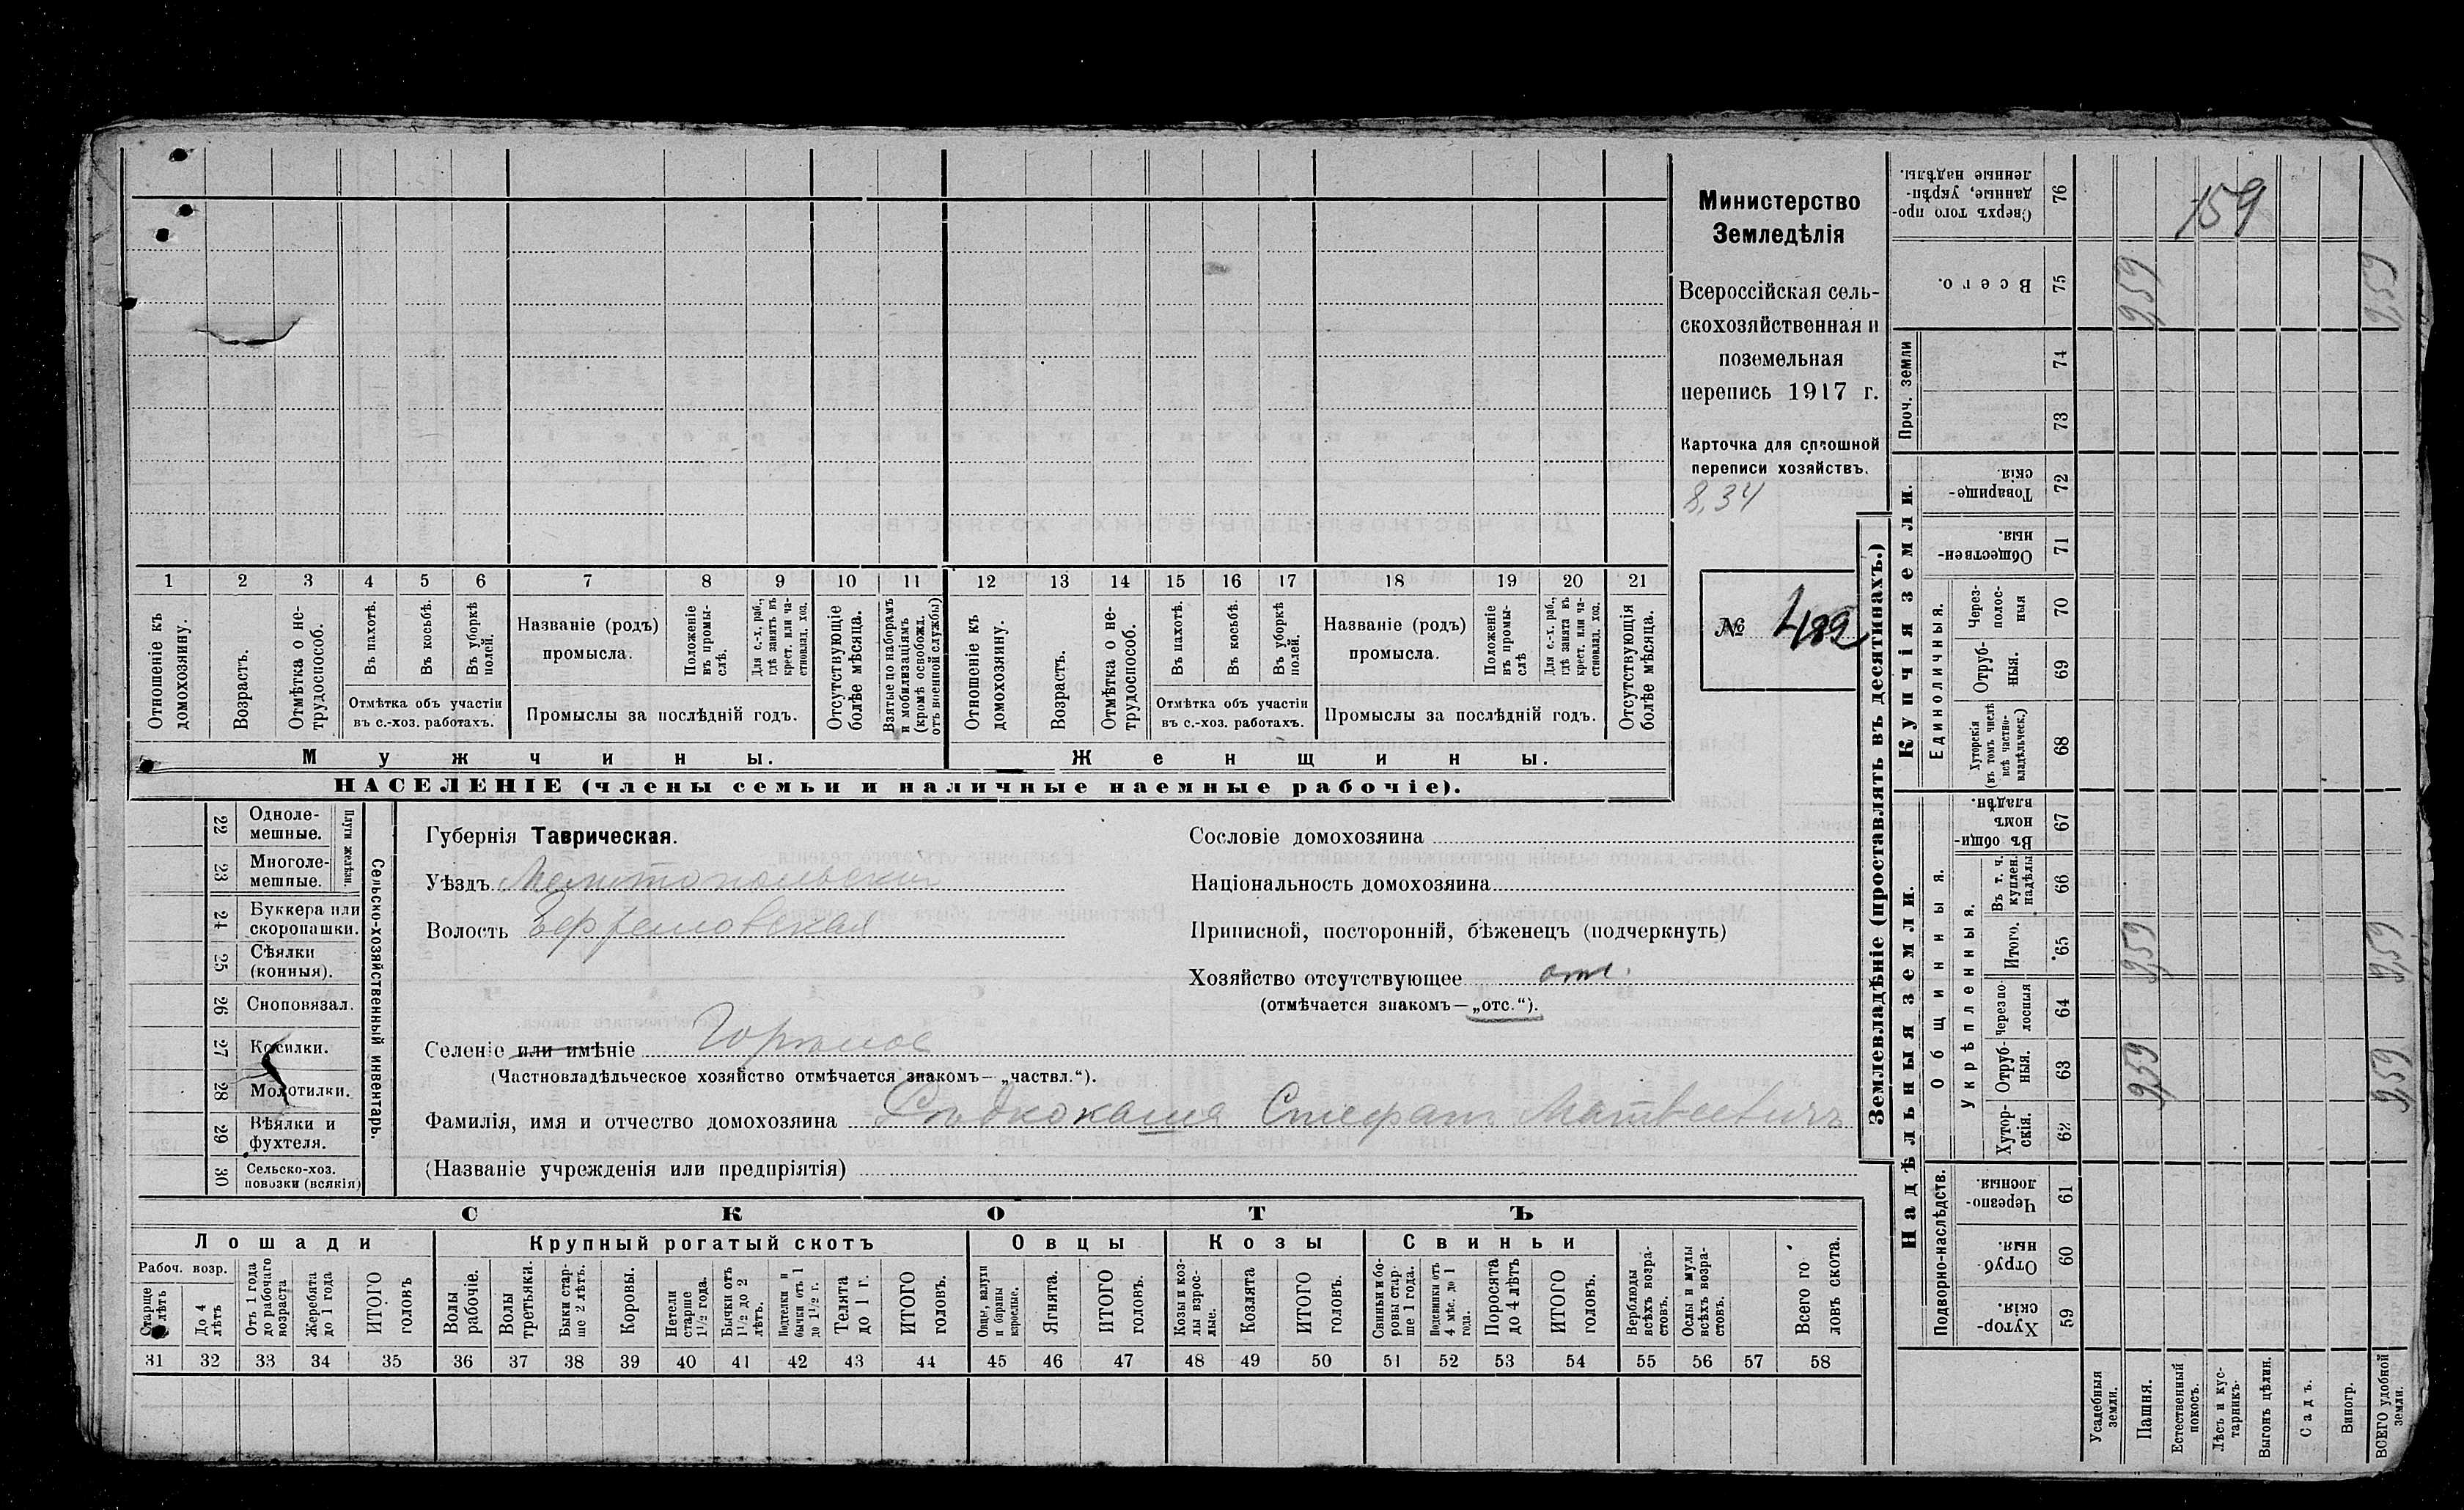 1 2 3 4 5 6 7 8 9 10 11 12 13 14 15 16 17 18 19 20 21
Отношеніе къ домохозяину.
Возрастъ.
Отмѣтка о нетрудоспособ.
Въ пахотѣ.
Въ косьбѣ.
Въ уборкѣ полей.
Отмѣтка объ участіи
въ с.-хоз. работахъ.
Названіе (родъ)
промысла.
Положеніе въ промыслѣ.
Для с.-х. раб., гдѣ занятъ въ крест. или частновлад. хоз.
Промыслы за послѣдній годъ.
Отсутствующіе болѣе мѣсяца.
Взятые по наборамъ и мобилизаціямъ (кромѣ освобожд. отъ военной службы)
Отношеніе къ домохозяину.
Возрастъ.
Отмѣтка о нетрудоспособ.
Въ пахотѣ.
Въ косьбѣ.
Въ уборкѣ полей.
Отмѣтка объ участіи
въ с.-хоз. работахъ.
Названіе (родъ)
промысла.
Положеніе въ промыслѣ
Для с.-х. раб., гдѣ занята въ крест. или частновлад. хоз.
Промыслы за послѣдній годъ.
Отсутствующія болѣе мѣсяца.
Мужчины.
Женщины.
НАСЕЛЕНІЕ (члены семьи и наличные наемные рабочіе).
Министерство
Земледѣлія
Всероссійская сель-
скохозяйственная и
поземельная
перепись 1917 г.
Карточка для сплошной
переписи хозяйствъ.
8,34
№ 489
22 Однолемешные.
23 Многолемешные.
Плуги желѣзн.
24 Буккера или скоропашки.
25 Сѣялки (конныя).
26 Сноповязал.
27 Косилки.
28 Молотилки.
29 Вѣялки и фухтеля.
30 Сельско-хоз. повозки (всякія)
Сельско-хозяйственный инвентарь.
Губернія Таврическая.
Уѣздъ Мелитопольскій
Волость Ефремовская
Селеніе или имѣніе
(Частновладѣльческое хозяйство отмѣчается знакомъ—„частвл.“).
Фамилія, имя и отчество домохозяина Рѣдкокаша Стефанъ Матвеевичъ
(Названіе учрежденія или предпріятія)
Сословіе домохозяина
Національность домохозяина
Приписной, посторонній, бѣженецъ (подчеркнуть)
Хозяйство отсутствующее отс.
(отмѣчается знакомъ—„отс.“).
СКОТЪ
Лошади
Крупный рогатый скотъ
Овцы
Козы
Свиньи
Рабоч. возр.
Старше лѣтъ
До 4 лѣтъ
Отъ 1 года до рабочаго возраста
Жеребята до 1 года
ИТОГО головъ
Волы рабочіе.
Волы третьяки.
Быки старше 2 лѣтъ.
Коровы.
Нетели старше 1½ года.
Бычки отъ 1½ до 2 лѣтъ.
Подтелки и бычки отъ 1 до 1½ г.
Телята до 1 г.
ИТОГО головъ.
Овцы, валухи и бараны взрослые.
Ягнята.
ИТОГО головъ.
Козы и козлы взрослые.
Козлята
ИТОГО головъ.
Свиньи и боровы стар­ше 1 года.
Подсвинки отъ 4 мѣс. до 1 года.
Поросята до 4 лѣтъ
ИТОГО головъ.
Верблюды всѣхъ возрастовъ.
Ослы и мулы всѣхъ возрастовъ.
Всего головъ скота.
31 32 33 34 35 36 37 38 39 40 41 42 43 44 45 46 47 48 49 50 51 52 53 54 55 56 57 58
Землевладѣніе (проставлять въ десятинахъ.)
Надѣльныя земли.
Купчія земли.
Проч. земли
Подворно-наслѣдств.
Общинныя.
Укрѣпленныя.
Единоличныя.
76 Сверхъ того проданные, укрѣпленные надѣлы.
159
75 Всего. 9,59 9,59
74
73
72 Товарищескія.
71 Общественныя.
70 Черезполосныя
69 Отрубныя.
68 Хуторскія (въ томъ числѣ всѣ частновладѣльческ.)
67 Въ общинномъ владѣн.
66 Въ т. ч. куплен. надѣлы
65 Итого. 9,59 9,59
64 Черезполосныя
63 Отрубныя. 9,59 9,59
62 Хуторскія.
61 Черезполосныя
60 Отрубныя.
59 Хуторскія.
Усадебныя земли.
Пашня.
Естественный покосъ.
Лѣсъ и кустарникъ.
Выгонъ цѣлин.
Садъ.
Виногр.
ВСЕГО удобной земли.